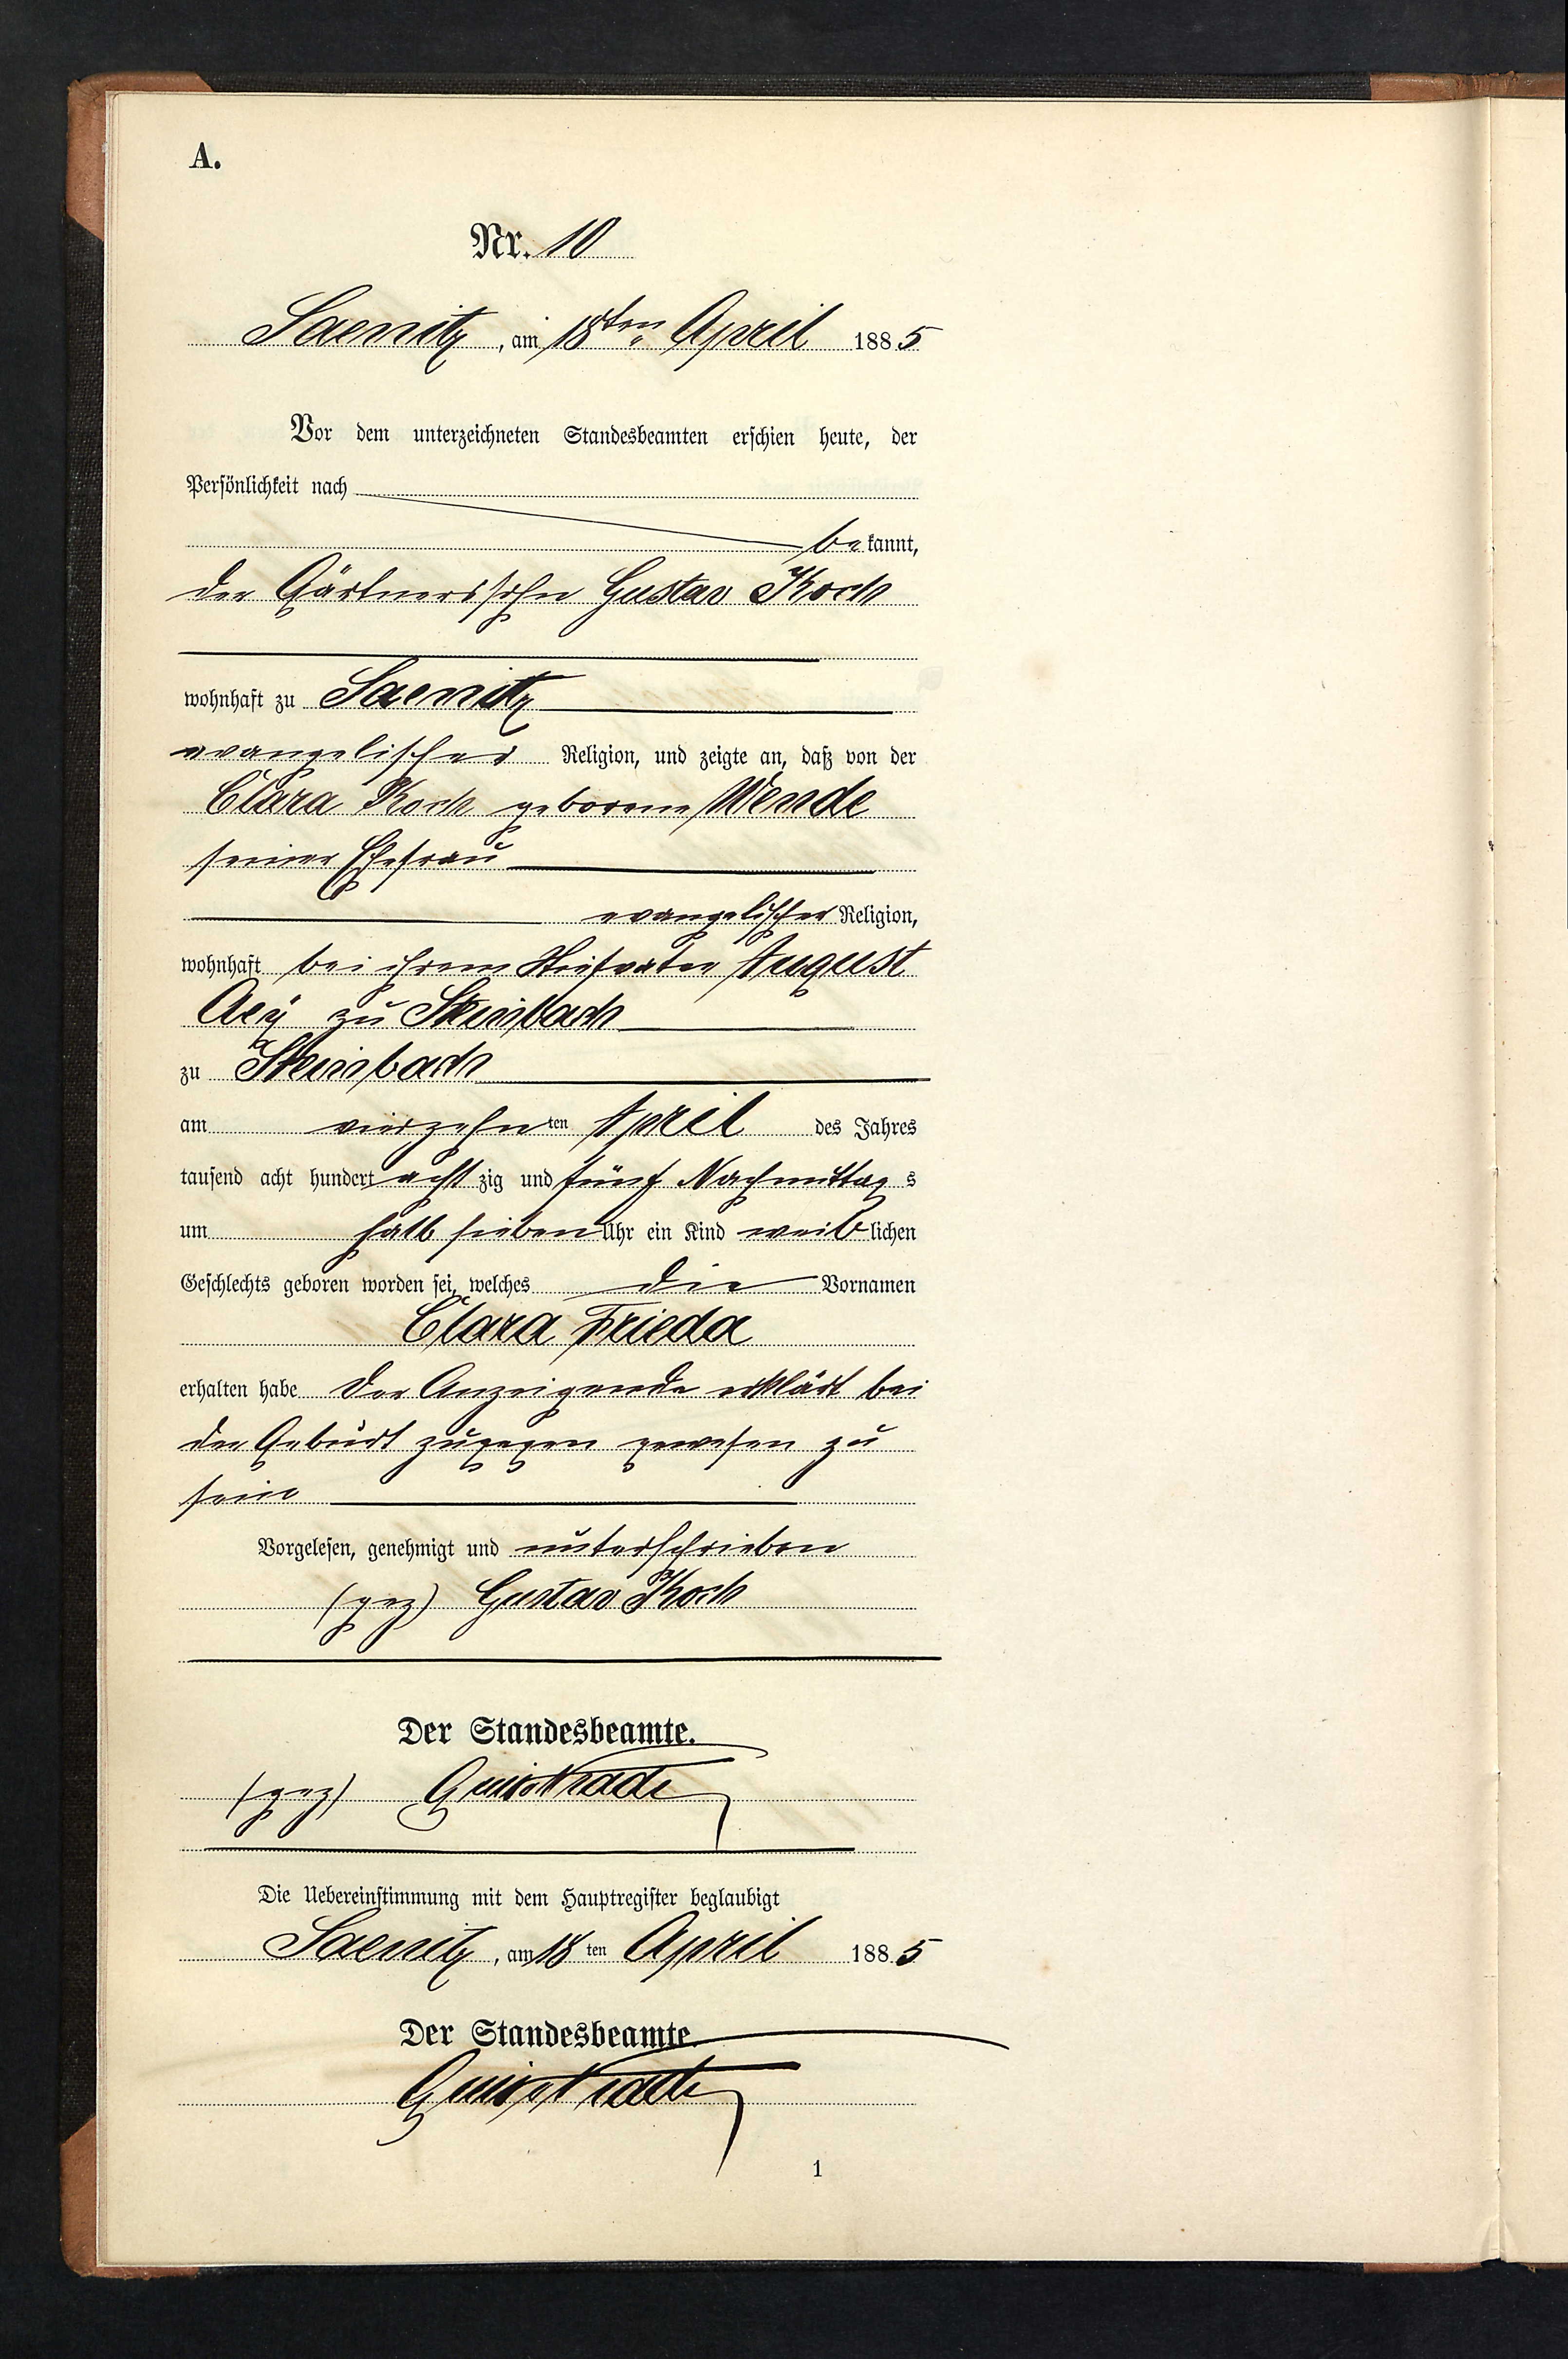 A.
Nr. 10
Saenitz, am 18ten April 1885
Vor dem unterzeichneten Standesbeamten erschien heute, der
Persönlichkeit nach
bekannt,
der Gärtnerssohn Gustav Koch
wohnhaft zu Saenitz
evangelischer Religion, und zeigte an, daß von der
Clara Koch geborene Wende
seiner Ehefrau
evangelischer Religion,
wohnhaft bei ihrem Stiefvater August
zu Steinbach
zu Steinbach
am vierzehnten April des Jahres
tausend acht hundert achtzig und fünf Nachmittags
um halb sieben Uhr ein Kind weiblichen
Geschlechts geboren worden sei, welches die Vornamen
Clara Frieda
erhalten habe Der Anzeigende erklärt bei
der Geburt zugegen gewesen zu
sein
Vorgelesen, genehmigt und unterschrieben
(gez) Gustav Koch
Der Standesbeamte.
(gez)
Die Uebereinstimmung mit dem Hauptregister beglaubigt
Saenitz, am 18ten April 1885
Der Standesbeamte
1